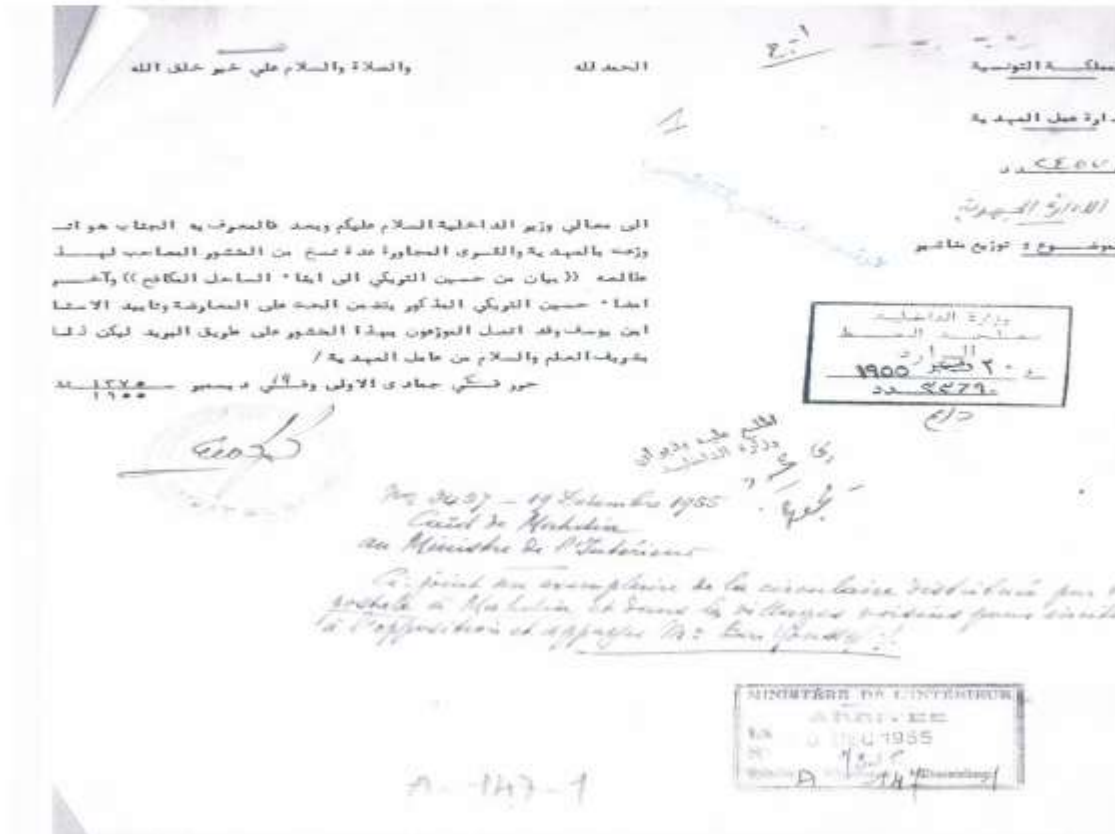 الحمد لله والصلاة والسلام على خير خلق الله
ملكــة التونسية
دارة عمل المهدية
الادارة الجهوية
موضــوع : توزيع مناشير
1
الى معالي وزير الداخلية السلام عليكم وبعد فالمعرف به الجناب هو اتــ
وزعت بالمهدية والقــرى المجاورة عدة نسخ من المنشور المصاحب لهــذ
طالعه ((بيان من حسين التريكي الى ابناء الساحل المكافح)) وآخــر
امضاء حسين التريكي المذكور يتضمن الحث على المعارضة وتاييد الاستا
ابن يوسف وقد اتصل الموزعون بهذا المنشور على طريق البريد ليكن ذلــ
بشريف العلم والسلام من عامل المهدية /
حرر فــي جمادى الاولى وفــي 19 ديسمبر ١٣٧٥ ١٩٥٥
وزارة الداخلية
مصلحة الضبط
الــوارد
٢٠ ديسمبر 1955
اطلع عليه بديوان
وزارة الداخلية
No 2457 - 19 Décembre 1955
Caïd de Mahdia
au Ministre de l'Intérieur
Ci-joint un exemplaire de la circulaire distribuée par
postale à Mahdia et dans les villages voisins pour
à l'opposition et appuyer Me Ben Youssef
MINISTÈRE DE L'INTÉRIEUR
ARRIVÉE
DEC 1955
A 147
A-147-1